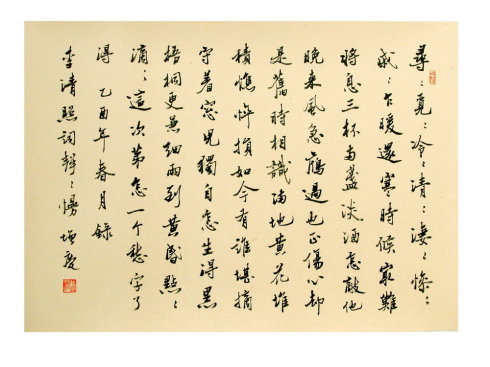 尋：覓：冷：清：淒：慘：
戚：乍暖還寒時候最難
將息三杯兩盞淡酒怎敵他
晚來風急鴈過也正傷心却
是舊時相識滿地黃花堆
積憔悴損如今有誰堪摘
守着窓兒獨自怎生得黑
梧桐更兼細雨到黃昏點：
滴：這次第怎一个愁字了
得 乙酉年春月錄
李清照詞聲：慢 慶